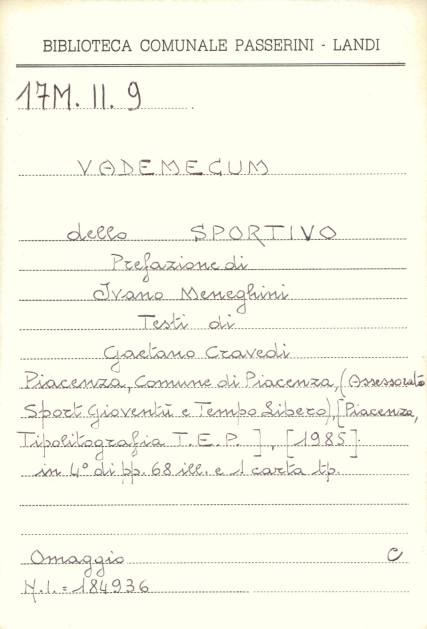 BIBLIOTECA COMUNALE PASSERINI - LANDI
17M. II. 9
VADEMECUM
dello SPORTIVO
Prefazione di
Ivano Meneghini
Testi di
Gaetano Cravedi
Piacenza, Comune di Piacenza, (Assessorato
Sport Gioventù e Tempo Libero), [Piacenza,
Tipolitografia T.E.P. ], [1985].
in 4° di pp. 68 ill. e 1 carta tp.
Omaggio C
N.I. = 184936